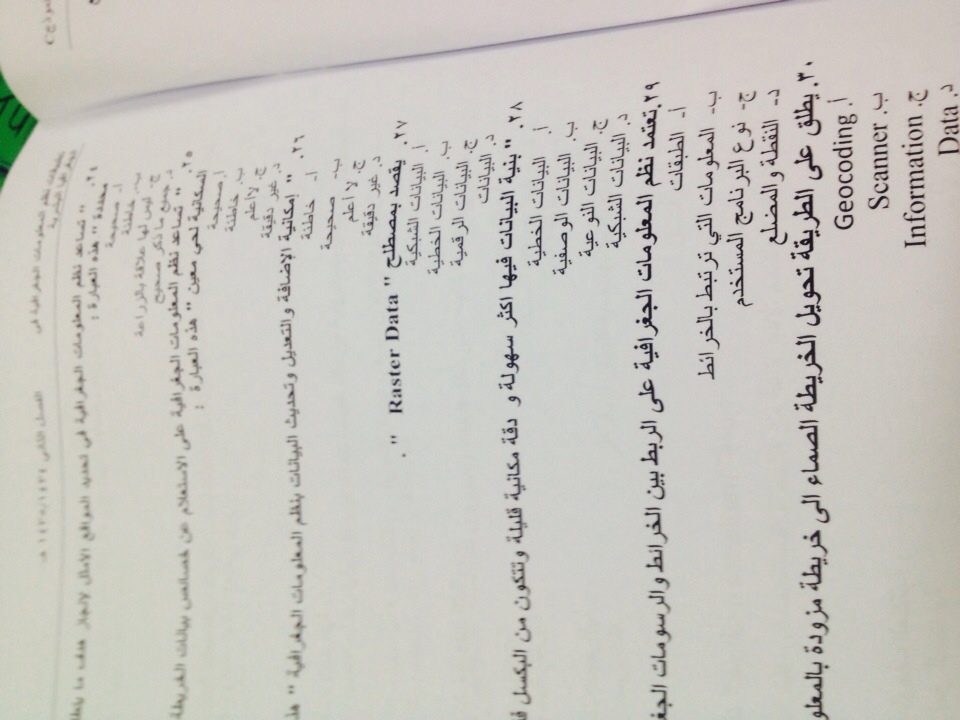 تطبيقات نظم المعلومات الجغرافية في
الفصل الثاني ١٤٣٥/١٤٣٤ هـ
الجغرافيا البشرية
٢٤. " تساعد نظم المعلومات الجغرافية في تحديد المواقع الأمثل لإنجاز هدف ما
محددة " هذه العبارة :
أ- صحيحة
ب- خاطئة
ج- ليس لها علاقة بالزراعة
د. جميع ما ذكر صحيح
٢٥. " تساعد نظم المعلومات الجغرافية على الاستعلام عن خصائص بيانات الخريطة
المكانية لحي معين " هذه العبارة :
أ. صحيحة
ب. خاطئة
ج. لا أعلم
د. غير دقيقة
٢٦. " إمكانية الإضافة والتعديل وتحديث البيانات بنظم المعلومات الجغرافية "
أ- خاطئة
ب- صحيحة
ج. لا أعلم
د. غير دقيقة
٢٧. يقصد بمصطلح " Raster Data " .
أ. البيانات الشبكية
ب. البيانات الخطية
ج. البيانات الرقمية
د. البيانات
٢٨. " بنية البيانات فيها اكثر سهولة و دقة مكانية قليلة وتتكون من البكسل
أ. البيانات الخطية
ب. البيانات الوصفية
ج. البيانات النوعية
د. البيانات الشبكية
٢٩. تعتمد نظم المعلومات الجغرافية على الربط بين الخرائط والرسومات
أ- الطبقات
ب- المعلومات التي ترتبط بالخرائط
ج- نوع البرنامج المستخدم
د- النقطة والمضلع
٣٠. يطلق على الطريقة تحويل الخريطة الصماء الى خريطة مزودة
أ. Geocoding
ب. Scanner
ج. Information
د. Data